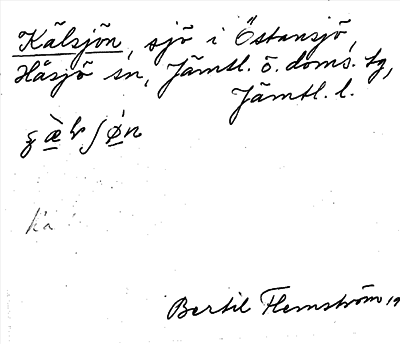 Kälsjön, sjö i Östansjö,
Håsjö sn, Jämtl. ö. doms. tg,
Jämtl. l.
Bertil Flemström, 19